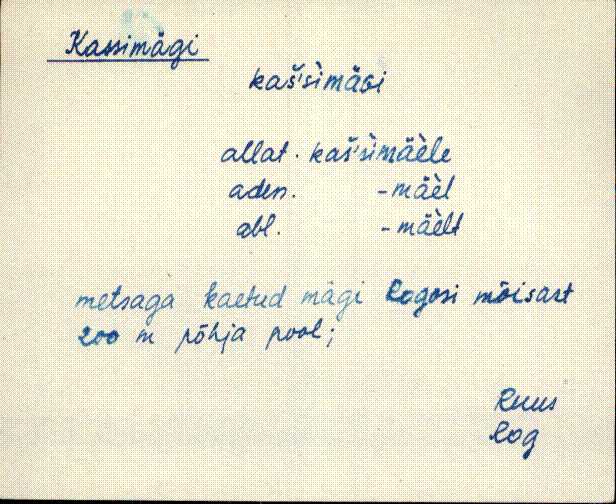 Kassimägi
kaš'šìmäGi
allat. kaš'šìmäèle
aden. -mäèl
abl. -mäèlt
metsaga kaetud mägi Rogosi mõisast
200 m põhja pool;
Ruus
Rog